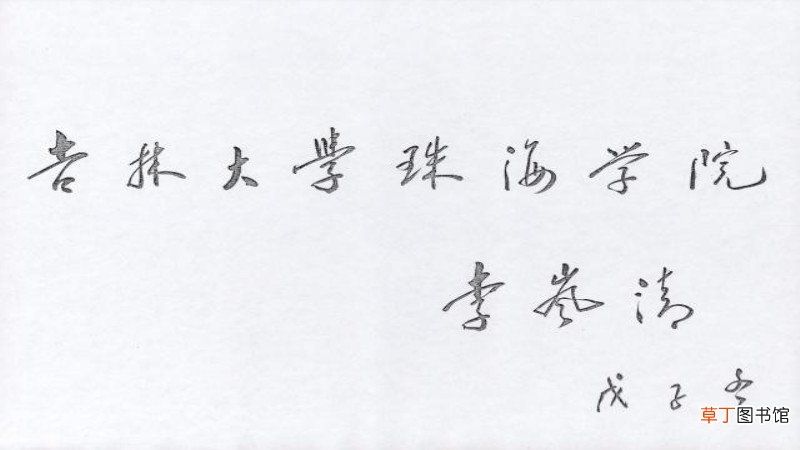 吉林大學珠海学院
李岚清
戊子冬
草丁图书馆